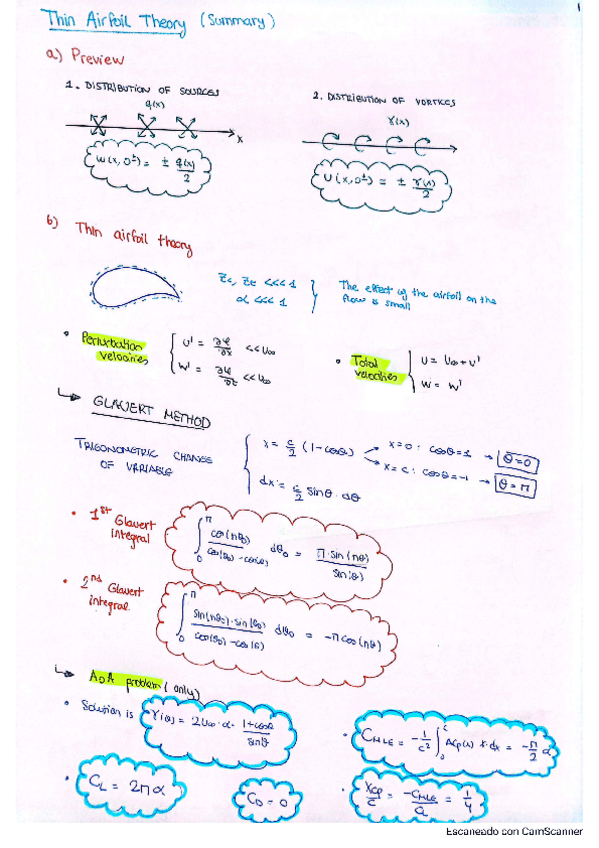 1
Thin Airfoil Theory (Summary)
a) Preview
1. DISTRIBUTION OF SOURCES
q(x)
x
w(x, 0±) = ± q(x)/2
2. DISTRIBUTION OF VORTICES
γ(x)
U(x, 0±) = ± γ(x)/2
b) Thin airfoil theory
Zc, Zt <<< 1
α <<< 1
The effect of the airfoil on the
flow is small
• Perturbation
velocities
u' = ∂φ/∂x << U∞
w' = ∂φ/∂z << U∞
• Total
velocities
U = U∞ + u'
W = w'
↳ GLAUERT METHOD
TRIGONOMETRIC CHANGE
OF VARIABLE
x = c/2 (1-cosθ)
x=0 : cosθ=1 → θ=0
x=c : cosθ=-1 → θ=π
dx = c/2 sinθ · dθ
• 1st Glavert
integral
∫₀^π cos(nθ₀)/(cos(θ₀) - cos(θ)) dθ₀ = π·sin(nθ)/sin(θ)
• 2nd Glavert
integral
∫₀^π sin(nθ₀)·sin(θ₀)/(cos(θ₀) - cos(θ)) dθ₀ = -π cos(nθ)
↳ AoA problem (only)
• Solution is γ(θ) = 2U∞ · α · (1+cosθ)/sinθ
• CL = 2πα
CD = 0
• CMLE = -1/c² ∫₀^c ΔCp(x) x·dx = -π/2 α
• xcp/c = -CMLE/CL = 1/4
Escaneado con CamScanner